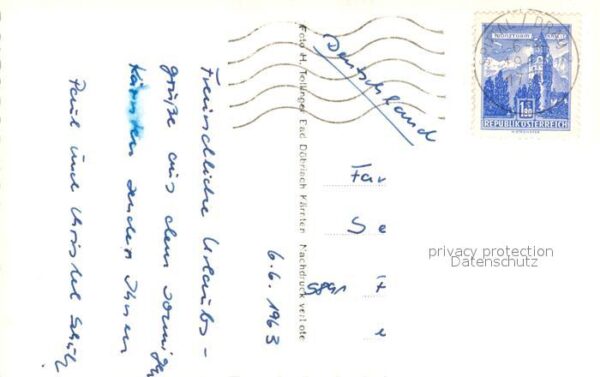 6.6.1963
Freundliche Urlaubs-
grüße aus dem sonnigen
Kärnten senden Ihnen
Paul und Christel
Foto H. Tollinger Bad Döbriach Kärnten Nachdruck verboten
Deutschland
Fa
Se
5891
F
e
MÜNZTURM
HALL
1.80
REPUBLIK ÖSTERREICH
privacy protection
Datenschutz